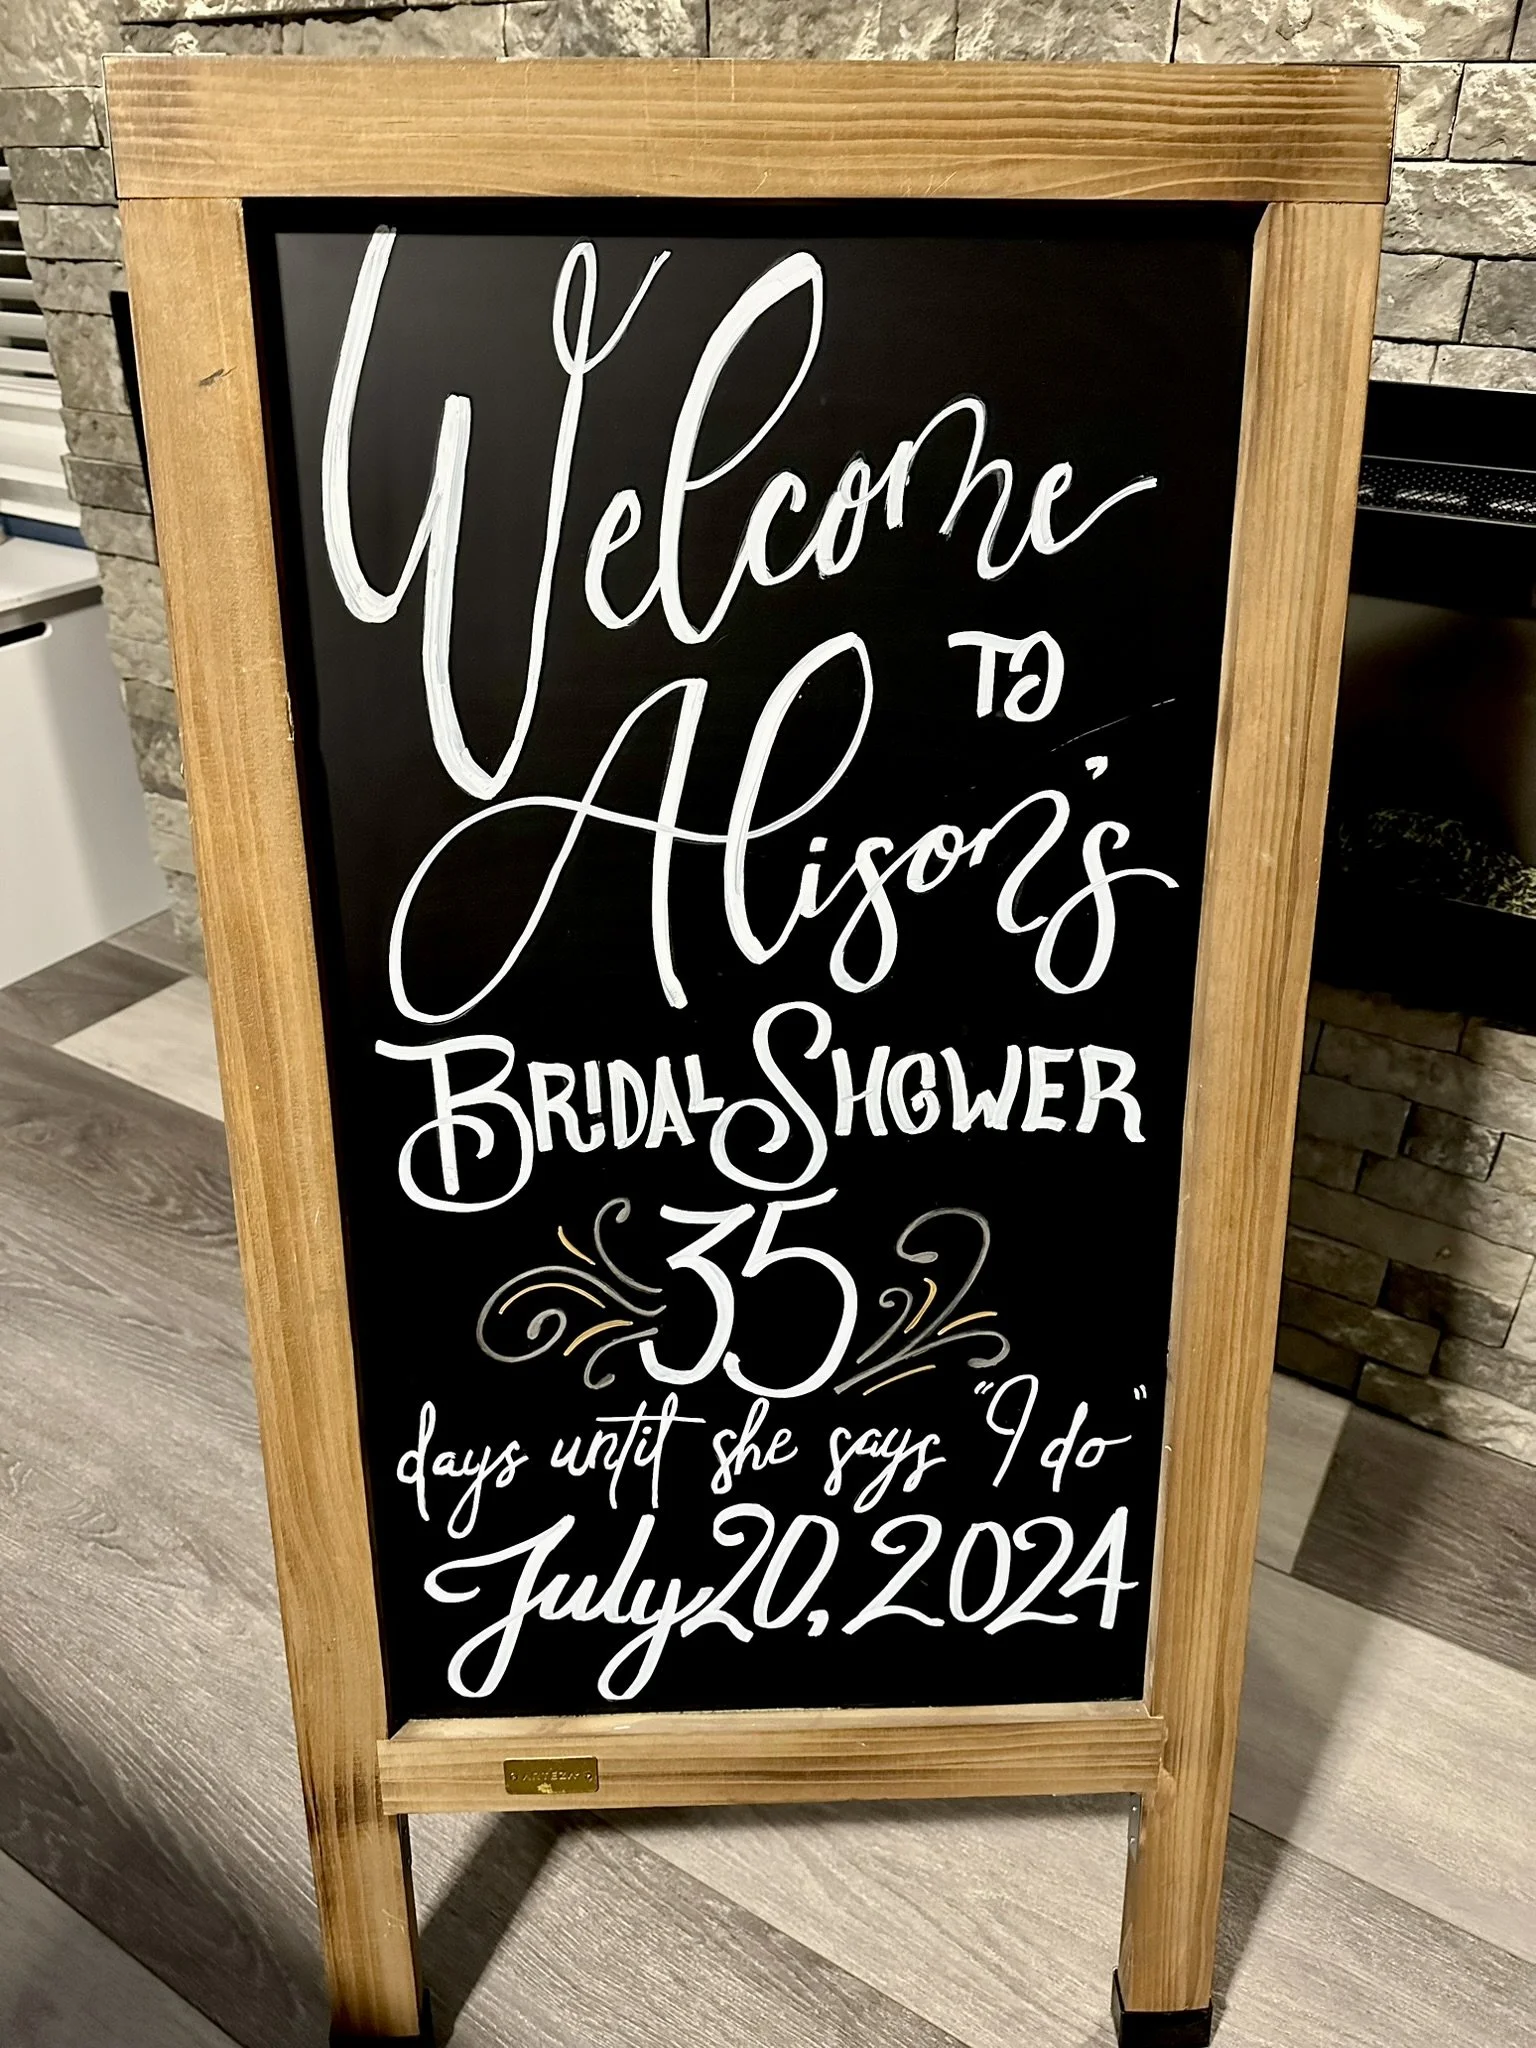 Welcome
To
Alison's
BRIDAL SHOWER
35
days until she says "I do"
July 20, 2024
ARTEZA